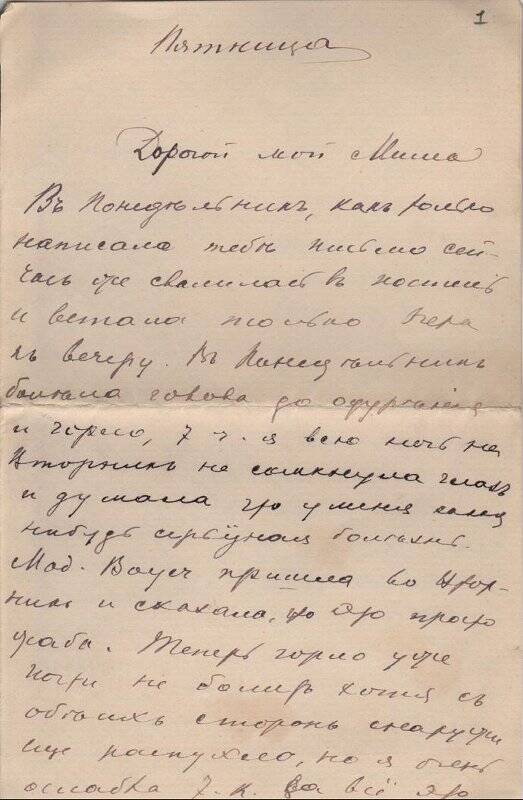 1
Пятница
Дорогой мой Миша
Въ Понедѣльникъ, какъ только
написала тебѣ письмо сей-
часъ же свалилась въ постель
и встала только вчера
къ вечеру. Въ Понедѣльникъ
болѣла голова до одурѣнія
и горло, т. ч. я всю ночь на
Вторникъ не сомкнула глазъ
и думала что у меня какая
нибудь серьёзная болѣзнь.
Mad. пришла во Втор-
никъ и сказала, что это просто
жаба. Теперь горло уже
почти не болитъ хотя съ
обѣихъ сторонъ снаружи
еще распухло, но я очень
ослабла т. к. за всё это